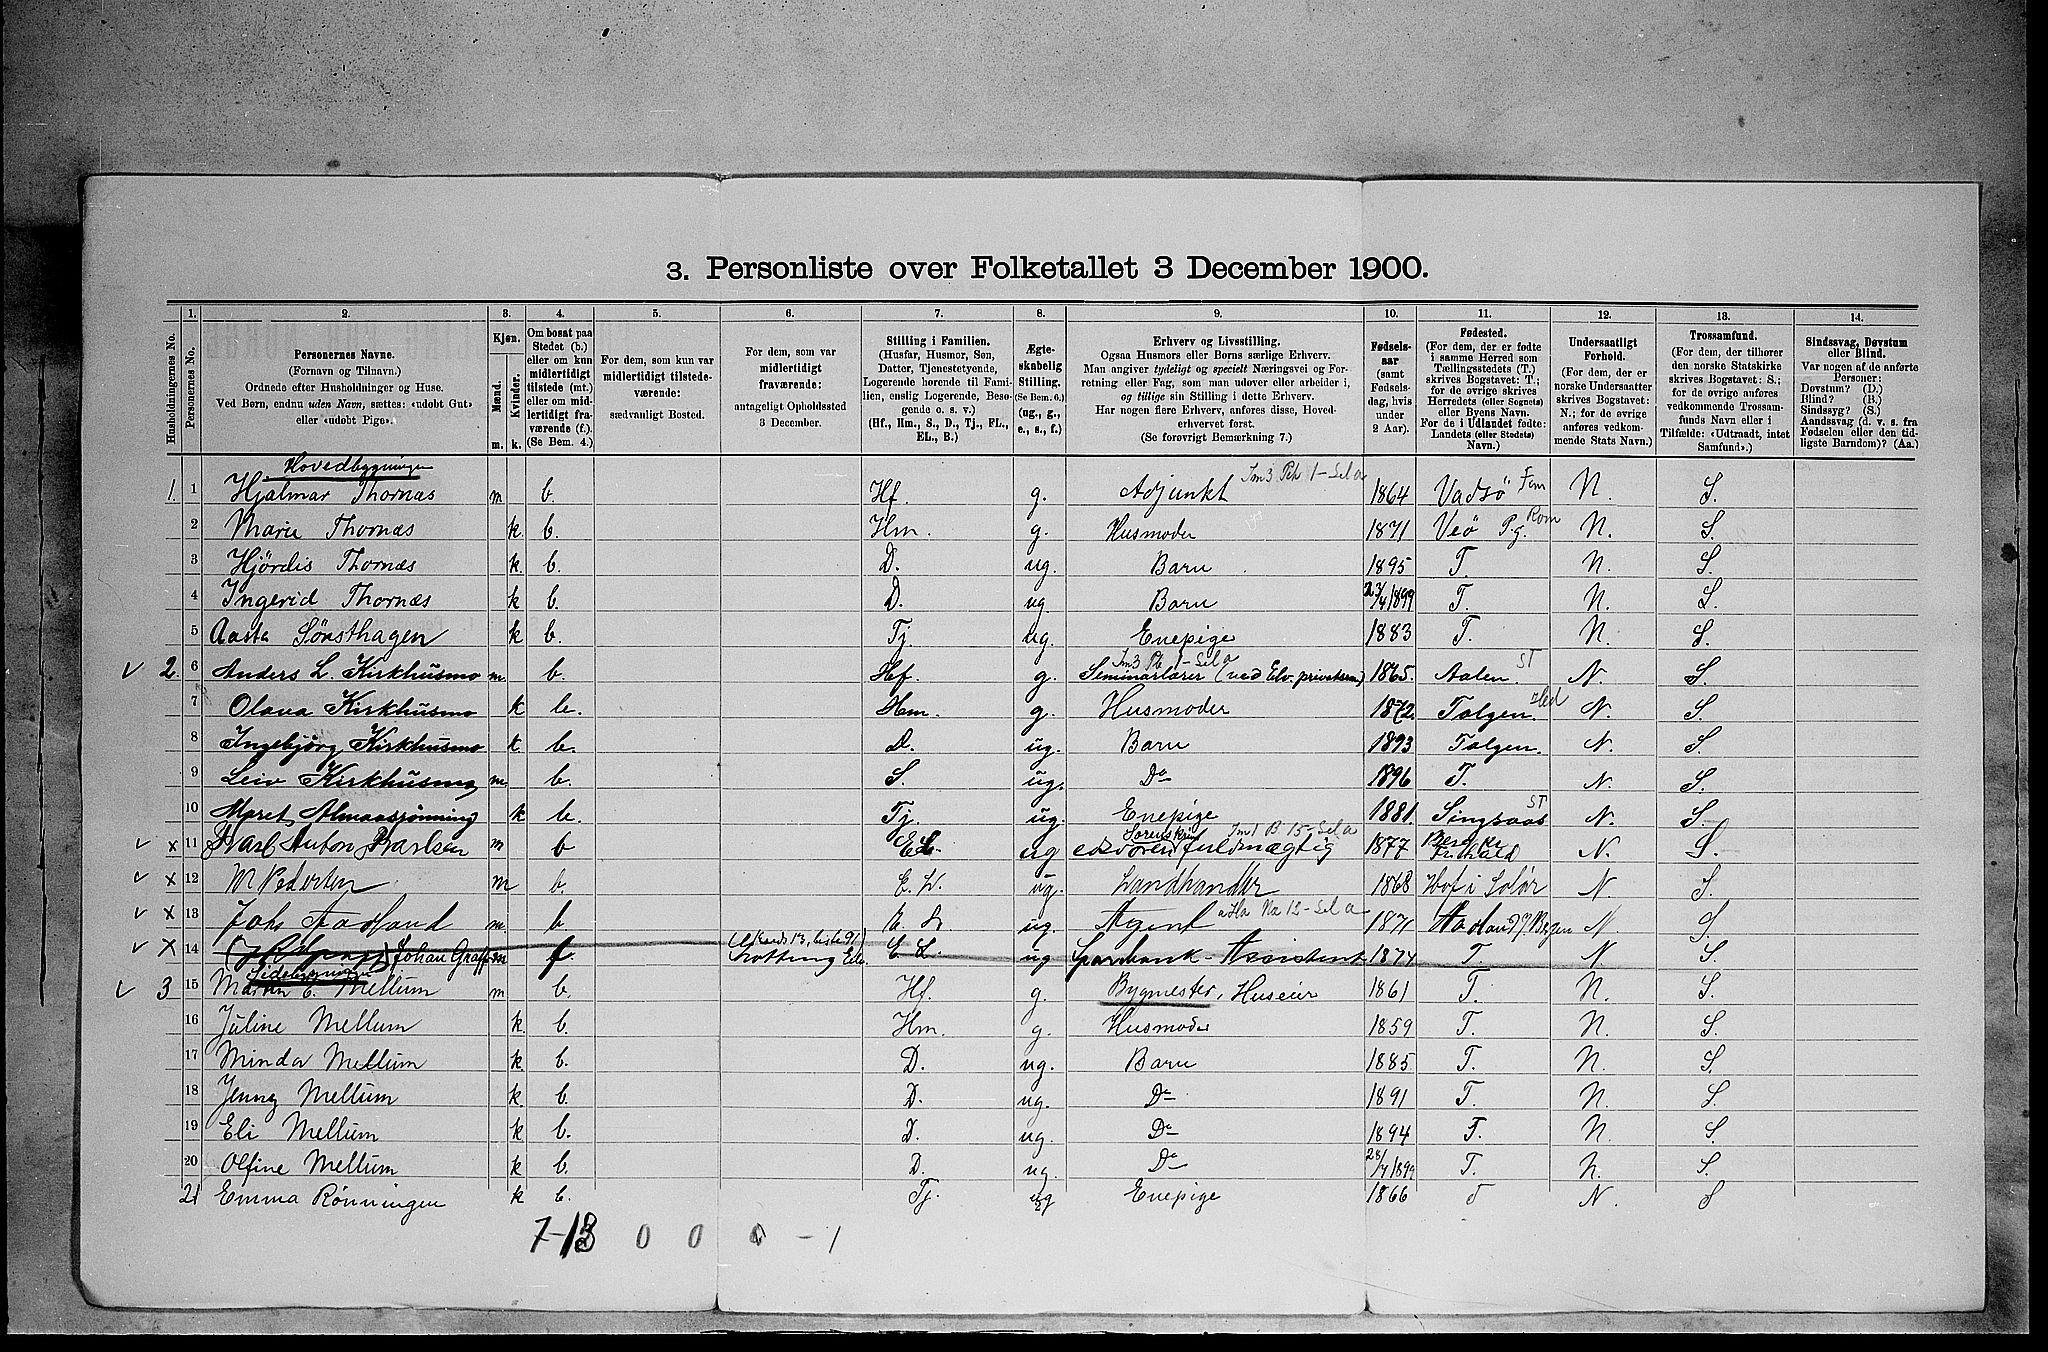 3. Personliste over Folketallet 3 December 1900.
Husholdningernes No.
1. Personernes No.
2. Personernes Navne. (Fornavn og Tilnavn.) Ordnede efter Husholdninger og Huse. Ved Børn, endnu uden Navn, sættes: «udøbt Gut» eller «udøbt Pige».
3. Kjøn. Mænd. m. Kvinder. k.
4. Om bosat paa Stedet (b.) eller om kun midlertidigt tilstede (mt.) eller om midlertidigt fraværende (f.). (Se Bem. 4.)
5. For dem, som kun var midlertidigt tilstedeværende: sædvanligt Bosted.
6. For dem, som var midlertidigt fraværende: antageligt Opholdssted 3 December.
7. Stilling i Familien. (Husfar, Husmor, Søn, Datter, Tjenestetyende, Logerende hørende til Familien, enslig Logerende, Besøgende o. s. v.) (Hf., Hm., S., D., Tj., FL., EL., B.)
8. Ægteskabelig Stilling. (Se Bem. 6.) (ug., g., e., s., f.)
9. Erhverv og Livsstilling. Ogsaa Husmors eller Børns særlige Erhverv. Man angiver tydeligt og specielt Næringsvei og Forretning eller Fag, som man udøver eller arbeider i, og tillige sin Stilling i dette Erhverv. Har nogen flere Erhverv, anføres disse, Hovederhvervet først. (Se forøvrigt Bemærkning 7.)
10. Fødselsaar (samt Fødselsdag, hvis under 2 Aar).
11. Fødested. (For dem, der er fødte i samme Herred som Tællingsstedets (T.) skrives Bogstavet: T.; for de øvrige skrives Herredets (eller Sognets) eller Byens Navn. For de i Udlandet fødte: Landets (eller Stedets) Navn.)
12. Undersaatligt Forhold. (For dem, der er norske Undersaatter skrives Bogstavet: N.; for de øvrige anføres vedkommende Stats Navn.)
13. Trossamfund. (For dem, der tilhører den norske Statskirke skrives Bogstavet: S.; for de øvrige anføres vedkommende Trossamfunds Navn eller i Tilfælde: «Udtraadt, intet Samfund».)
14. Sindssvag, Døvstum eller Blind. Var nogen af de anførte Personer: Døvstum? (D.) Blind? (B.) Sindssyg? (S.) Aandssvag (d. v. s. fra Fødselen eller den tidligste Barndom)? (Aa.)
Hovedbygningen
1. 1 Hjalmar Thornæs m b. Hf. g. Adjunkt 1864 Vadsø Fin N. S.
2 Marie Thornæs k b. Hm. g. Husmoder 1871 Veø Pg. Rom N. S.
3 Hjørdis Thornæs k. b. D. ug. Barn 1895 T. N. S.
4 Ingerid Thornæs k b. D. ug. Barn 23/4 1899 T. N. S.
5 Aasta Sønsthagen k b. Tj. ug. Enepige 1883 T. N S.
2. 6 Anders L. Kirkhusmo m. b. Hf. g. Seminarlærer (ved Elv. privatsem) 1865. Aalen. ST N. S.
7 Olava Kirkhusmo k b. Hm. g. Husmoder 1872. Tolgen. Hed N. S.
8 Ingebjørg Kirkhusmo k b. D. ug. Barn 1893 Tolgen. N. S.
9 Leiv Kirkhusmo m. b. S. ug. Do 1896 T. N. S.
10 Maret Almaasjønning k b. Tj. ug. Enepige 1881. Singsaas ST N. S.
11 Karl Anton Karlsen m b EL. ug Sorenskriv fuldmægtig 1877 N. S.
12 M Pedersen m b. E. L. ug. Landhandler 1868 Hof i Solør N S.
13 m. b E L. ug. Agent 1871 N. S.
14 Johan Graff m f. E. L. ug Sparebank-Assistent 1874 T N S.
Sidebygningen
3 15 Martin E. Mellum m b. Hf. g. Bygmester, Huseier 1861 T. N. S.
16 Juline Mellum k. b. Hm. g. Husmoder 1859 T. N. S.
17 Minda Mellum k b. D. ug. Barn 1885 T. N. S.
18 Jenny Mellum k. b. D. ug. Do 1891 T. N. S.
19 Eli Mellum k b. D. ug. Do 1894 T. N. S.
20 Olfine Mellum k b. D. ug. Do 28/7 1899 T. N. S.
21 Emma Rønningen k b. Tj. ug Enepige 1866 N. S
7-13 0 0 0 - 1